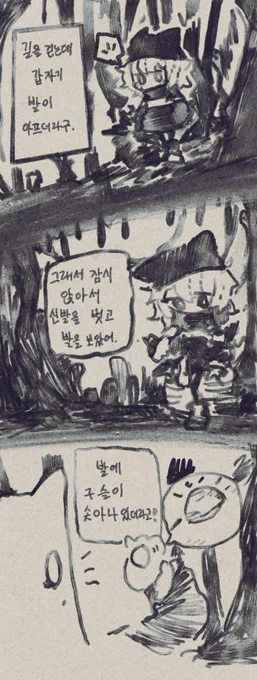 길을 걷는데
갑자기
발이
아프더라구.
그래서 잠시
앉아서
신발을 벗고
발을 보았어.
발에
구슬이
솟아나 있더라고!